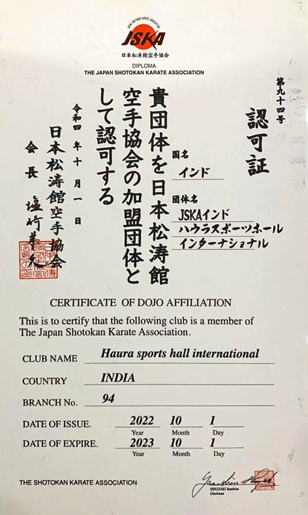 JSKA
日本松涛館空手協会
DIPLOMA
THE JAPAN SHOTOKAN KARATE ASSOCIATION
第九十四号
認可証
国名
インド
団体名
JSKAインド
ハウラスポーツホール
インターナショナル
貴団体を日本松涛館
空手協会の加盟団体と
して認可する
令和四年十月一日
日本松涛館空手協会
会長
CERTIFICATE OF DOJO AFFILIATION
This is to certify that the following club is a member of
The Japan Shotokan Karate Association.
CLUB NAME Haura sports hall international
COUNTRY INDIA
BRANCH No. 94
DATE OF ISSUE. 2022 10 1
Year Month Day
DATE OF EXPIRE. 2023 10 1
Year Month Day
THE SHOTOKAN KARATE ASSOCIATION
Chairman